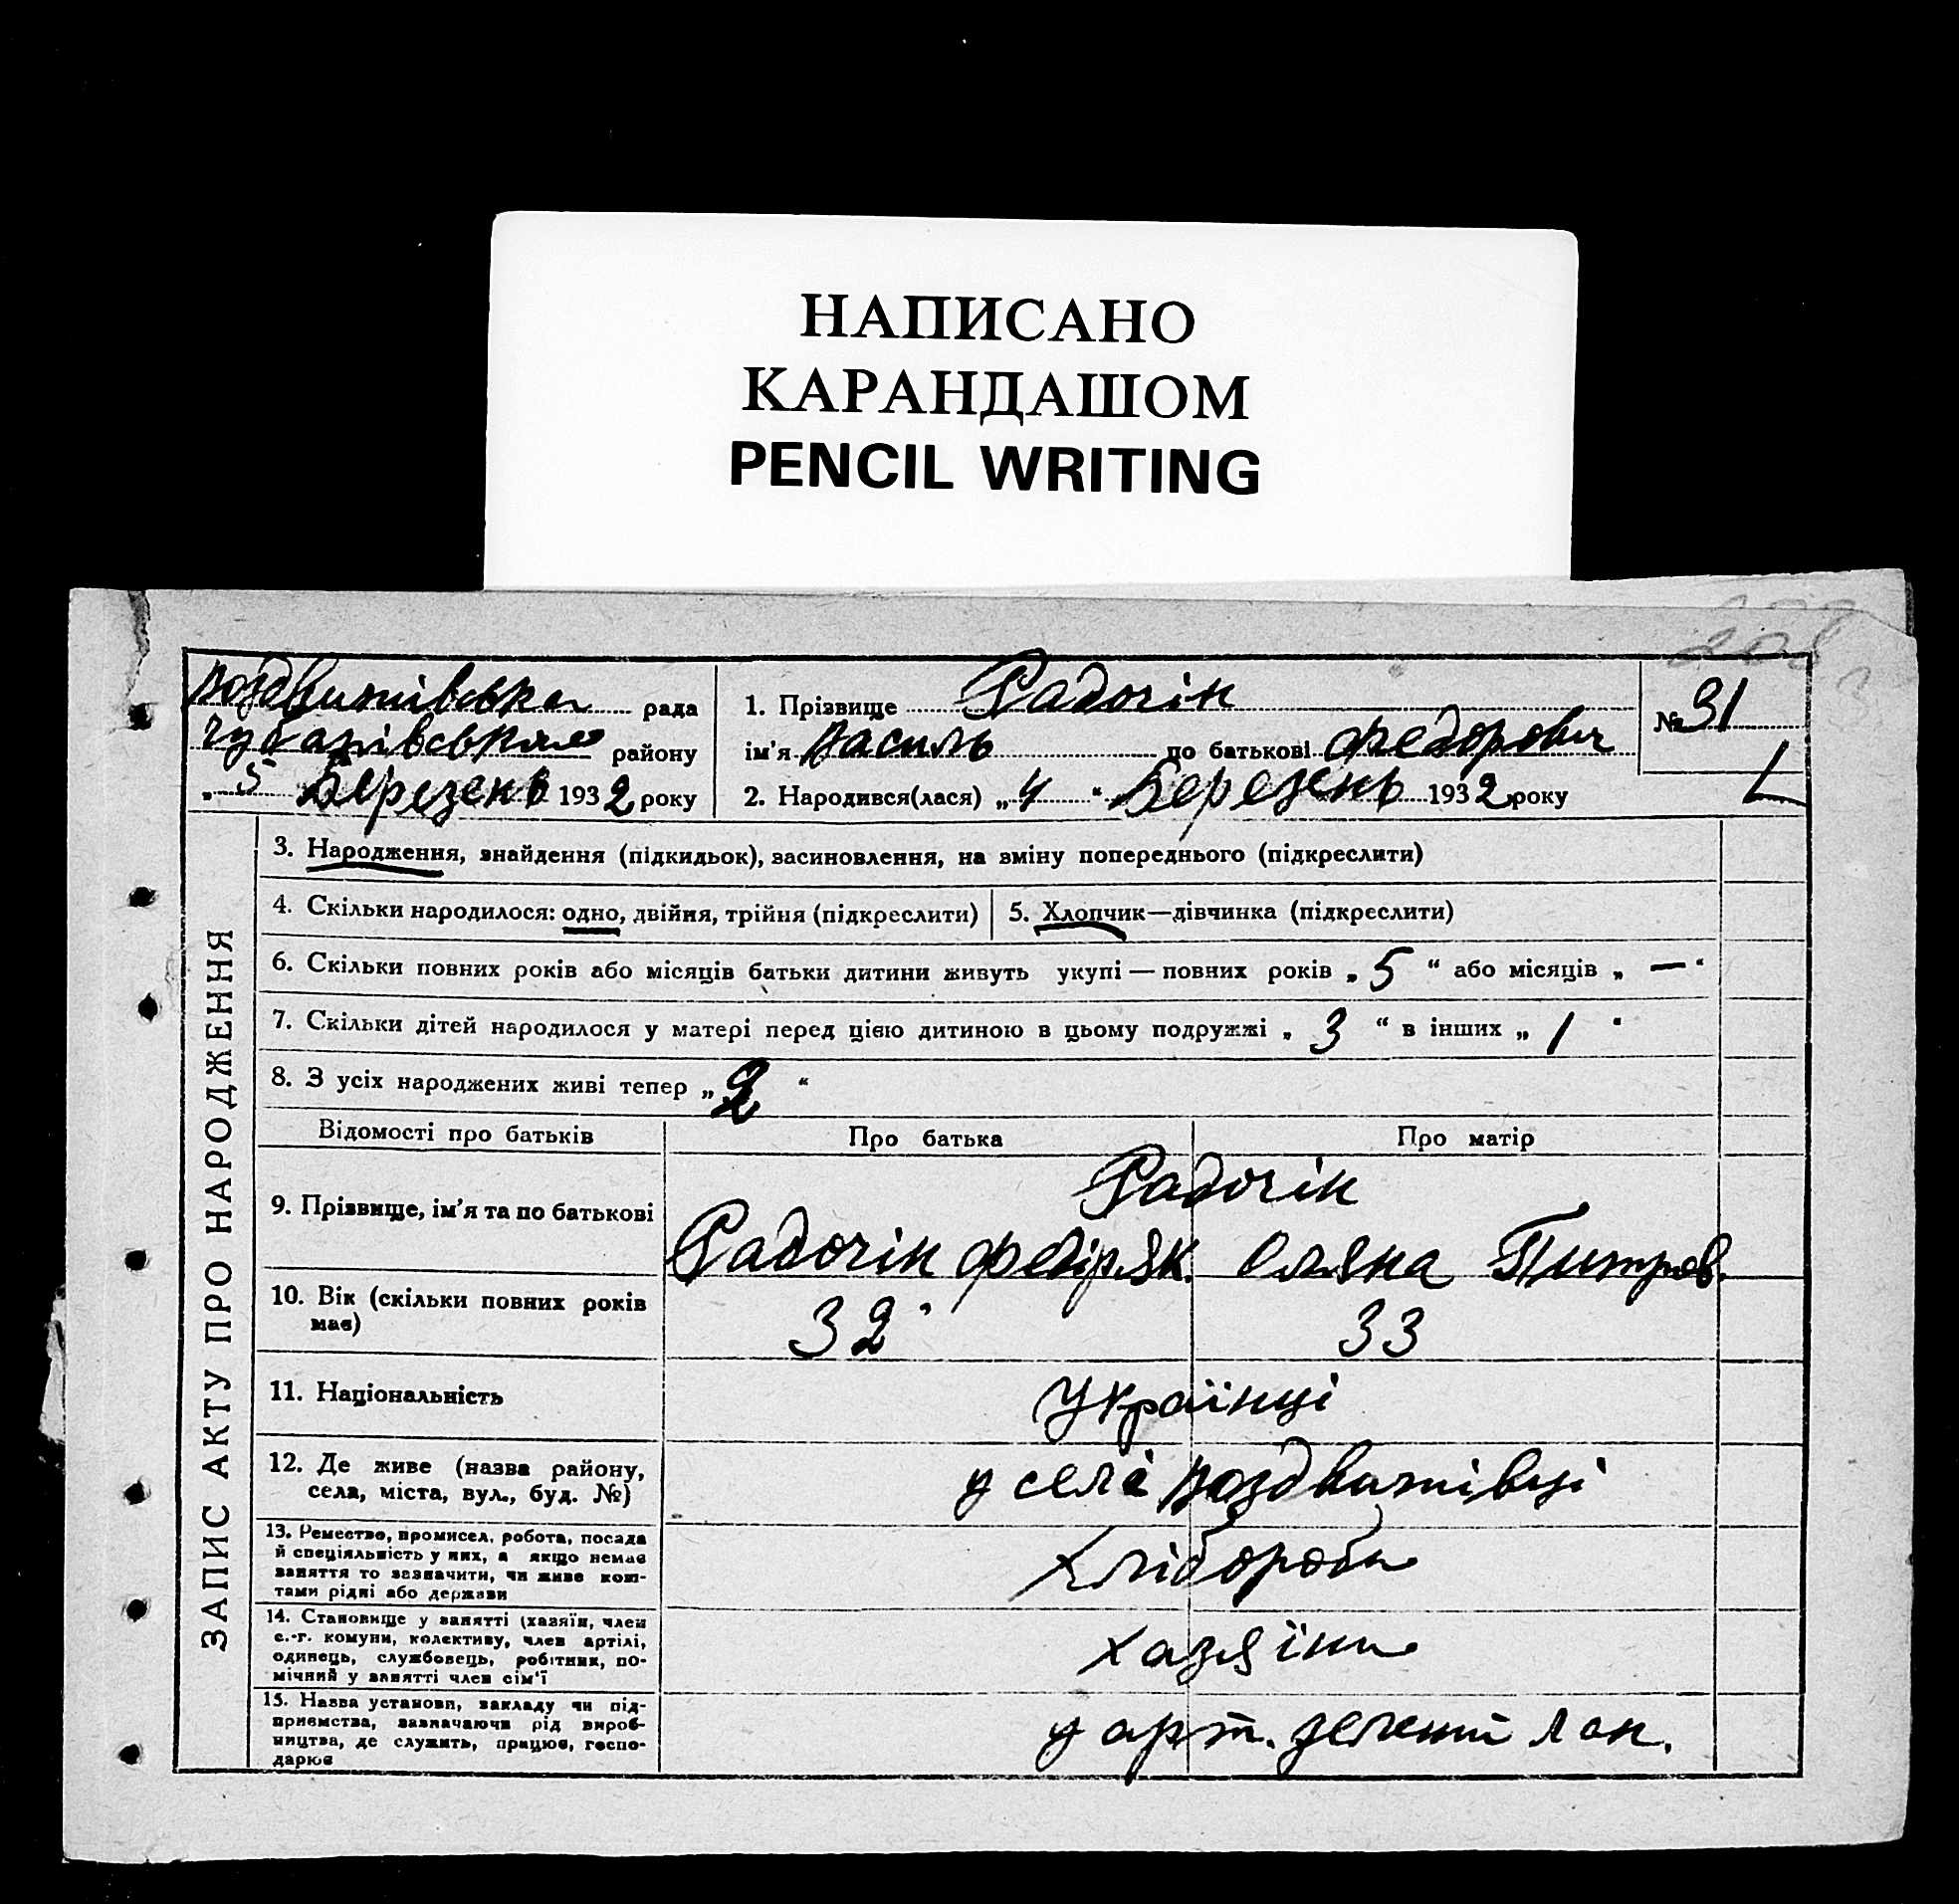 НАПИСАНО
КАРАНДАШОМ
PENCIL WRITING
Воздвижівська рада
району
„ 5 Березень 1932 року
1. Прізвище Радочін
ім'я Василь по батькові Федорович
2. Народився(лася) „ 4 “ Березень 1932 року
№ 31
ЗАПИС АКТУ ПРО НАРОДЖЕННЯ
3. Народження, знайдення (підкидьок), засиновлення, на зміну попереднього (підкреслити)
4. Скільки народилося: одно, двійня, трійня (підкреслити)
5. Хлопчик—дівчинка (підкреслити)
6. Скільки повних років або місяців батьки дитини живуть укупі — повних років „ 5 “ або місяців „ — “
7. Скільки дітей народилося у матері перед цією дитиною в цьому подружжі „ 3 “ в інших „ 1 “
8. З усіх народжених живі тепер „ 2 “
Відомості про батьків
Про батька
Про матір
9. Прізвище, ім'я та по батькові
Радочін
Радочін Федір Як. Оляна Питров.
10. Вік (скільки повних років
має)
32 33
11. Національність
Українці
12. Де живе (назва району,
села, міста, вул., буд. №)
у селі Воздвижівці
13. Ремество, промисел, робота, посада
й спеціяльність у них, а якщо немає
заняття то зазначити, чи живе кош-
тами рідні або держави
Хлібороби
14. Становище у занятті (хазяїн, член
с.-г. комуни, колективу, член артілі,
одинець, службовець, робітник, по-
мічний у занятті член сім'ї
Хазяїни
15. Назва установи, закладу чи під-
приємства, зазначаючи рід вироб-
ництва, де служить, працює, госпо-
дарює
у арт. зелений лан.